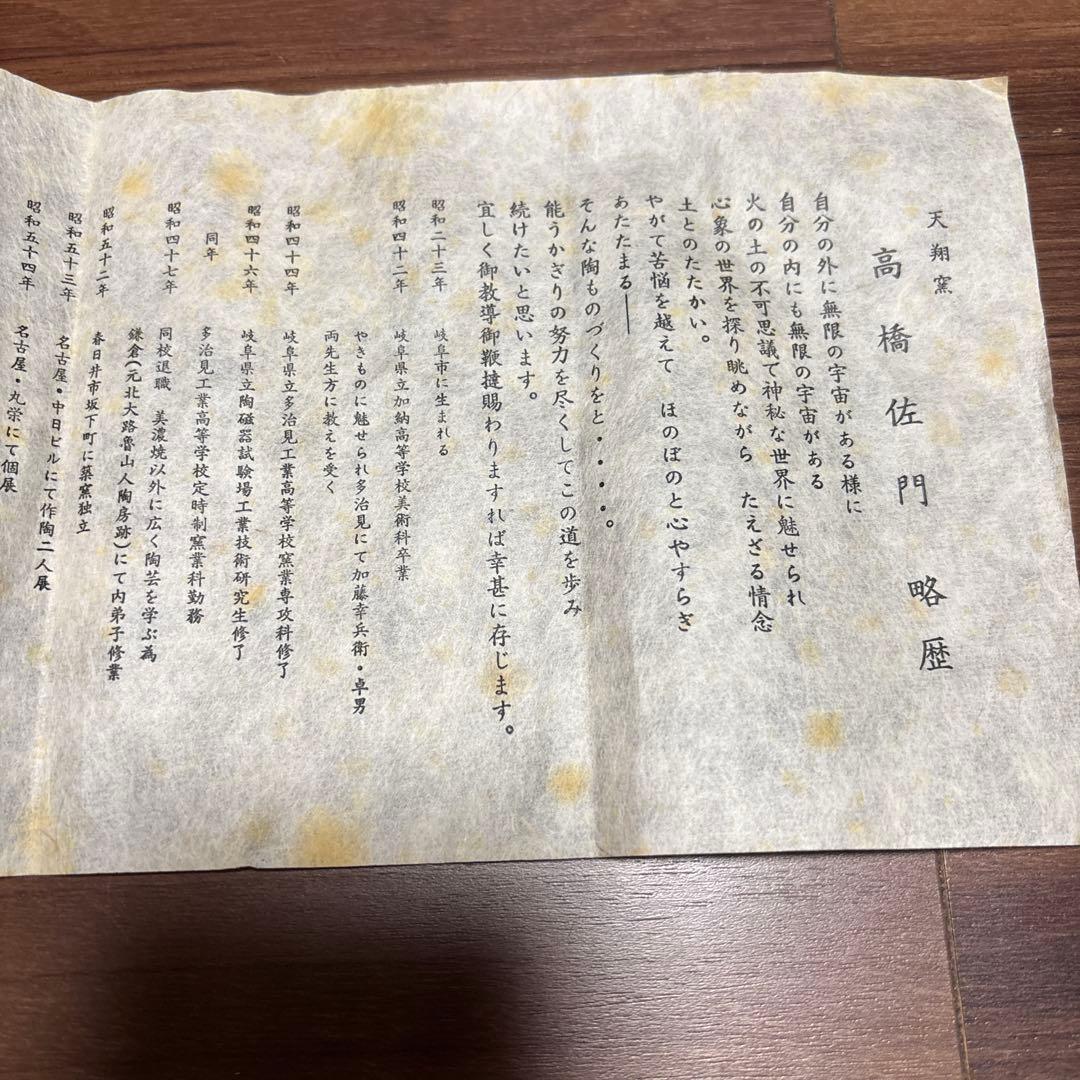 天翔窯
高橋佐門略歴
自分の外に無限の宇宙がある様に
自分の内にも無限の宇宙がある
火の土の不可思議で神秘な世界に魅せられ
心象の世界を探り眺めながら たえざる情念
土とのたたかい。
やがて苦悩を越えて ほのぼのと心やすらぎ
あたたまる――
そんな陶ものづくりをと・・・・。
能うかぎりの努力を尽くしてこの道を歩み
続けたいと思います。
宜しく御教導御鞭撻賜わりますれば幸甚に存じます。
昭和二十三年 岐阜市に生まれる
昭和四十二年 岐阜県立加納高等学校美術科卒業
やきものに魅せられ多治見にて加藤幸兵衛・卓男
両先生方に教えを受く
昭和四十四年 岐阜県立多治見工業高等学校窯業専攻科修了
昭和四十六年 岐阜県立陶磁器試験場工業技術研究生修了
同年 多治見工業高等学校定時制窯業科勤務
昭和四十七年 同校退職 美濃焼以外に広く陶芸を学ぶ為
鎌倉(元北大路魯山人陶房跡)にて内弟子修業
昭和五十二年 春日井市坂下町に築窯独立
昭和五十三年 名古屋・中日ビルにて作陶二人展
昭和五十四年 名古屋・丸栄にて個展